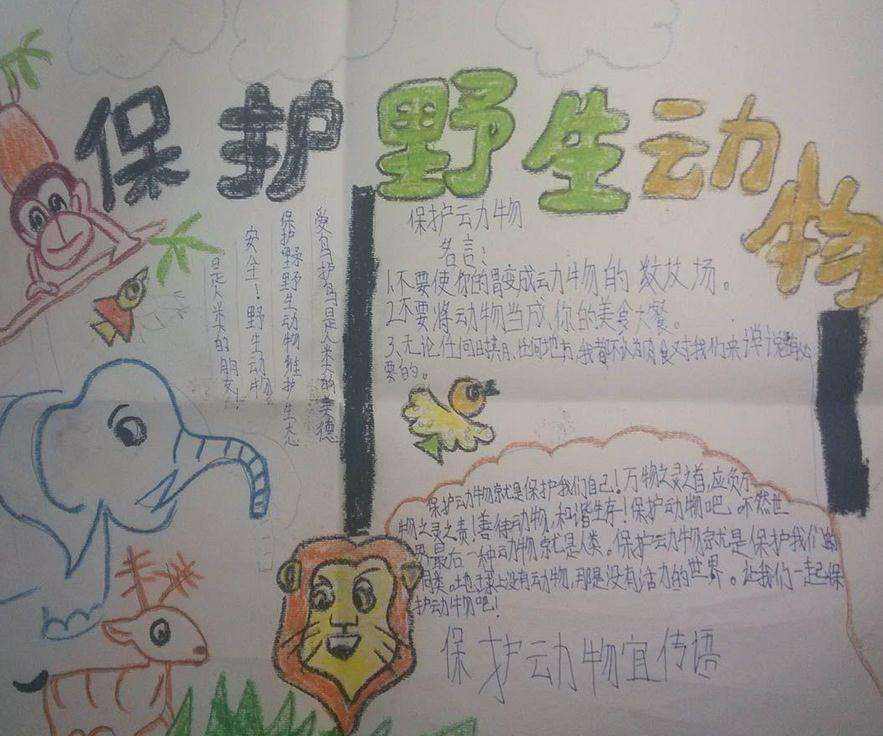 保护野生动物
爱鸟护鸟是人类的美德
保护野野生动物维护生态
安全！野生动物
是人类的朋友！
保护动物
名言：
1.不要使你的胃变成动物的教坟场。
2.不要将动物当成你的美食大餐。
3、无论任何日期，任何地方，我都不认为肉食对我们来说是
要的。
保护动物就是保护我们自己！万物之灵之首，应负万
物之灵之责！善使动物，和谐生存！保护动物吧，不然世
界最后一种动物就是人类。保护动物就是保护我们的
同类。地球上没有动物，那是没有活力的世界。让我们一起保
护动物吧！
保护动物宣传语